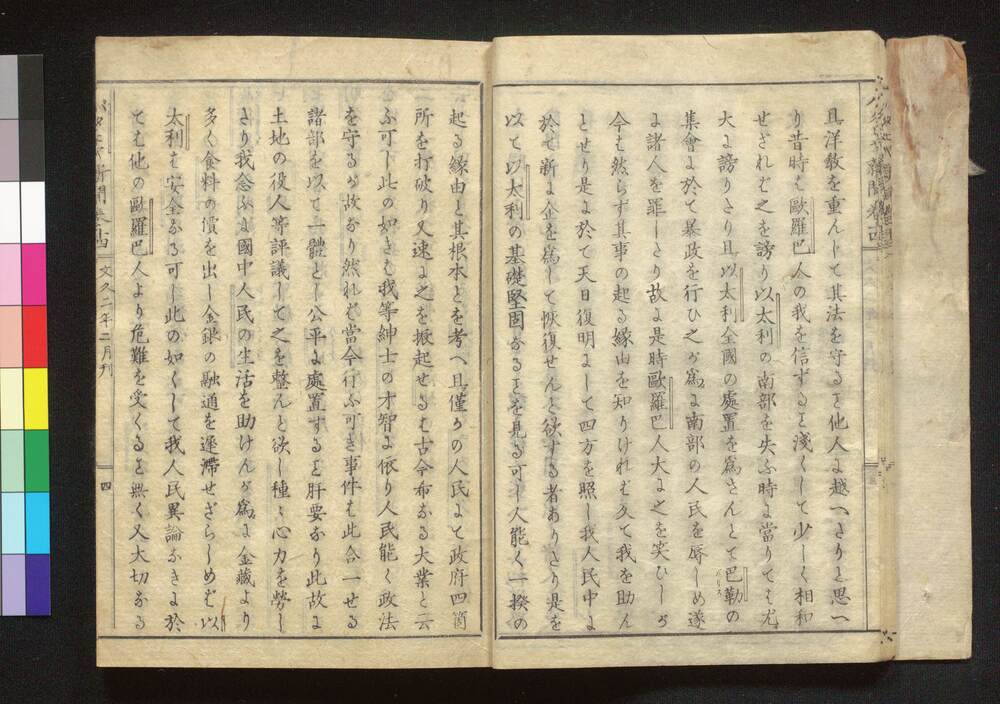 且洋教を重んじて其法を守ると他人に越へたりと思へ
り昔時も歐羅巴人の我を信ずると淺くして少しく相和
せざれば之を謗り以太利の南部を失ふ時に當りても尤
大に謗りたり且以太利全國の處置を爲さんとて巴勒の
集會に於て暴政を行ひ之が爲に南部の人民を辱しめ遂
に諸人を罪したり故に是時歐羅巴人大に之を笑ひしが
今も然らず其事の起る縁由を知りければ久て我を助ん
とせり是に於て天日復明にして四方を照し我人民中に
於も新に企を爲して恢復せんと欲する者ありたり是を
以て以太利の基礎堅固なるとを見る可し人能く一揆の
起る縁由と其根本とを考へ且僅かの人民にて政府四箇
所を打破り又速に之を振起せるは古今希なる大業と云
ふ可し此の如きも我等紳士の才智に依り人民能く政法
を守るが故なり然れども當今行ふ可き事件も此合一せる
諸部を以て一體とし公平に處置すると肝要なり此故に
土地の役人等評議して之を整んと欲し種々心力を勞し
たり我念ふに國中人民の生活を助けんが爲に金藏より
多く食料の價を出し金銀の融通を遲滯せざらしめば以
太利も安全なる可し此の如くして我人民異論なきに於
ても他の歐羅巴人より危難を受くると無く又大切なる
新聞卷十四 文久二年二月刊 四